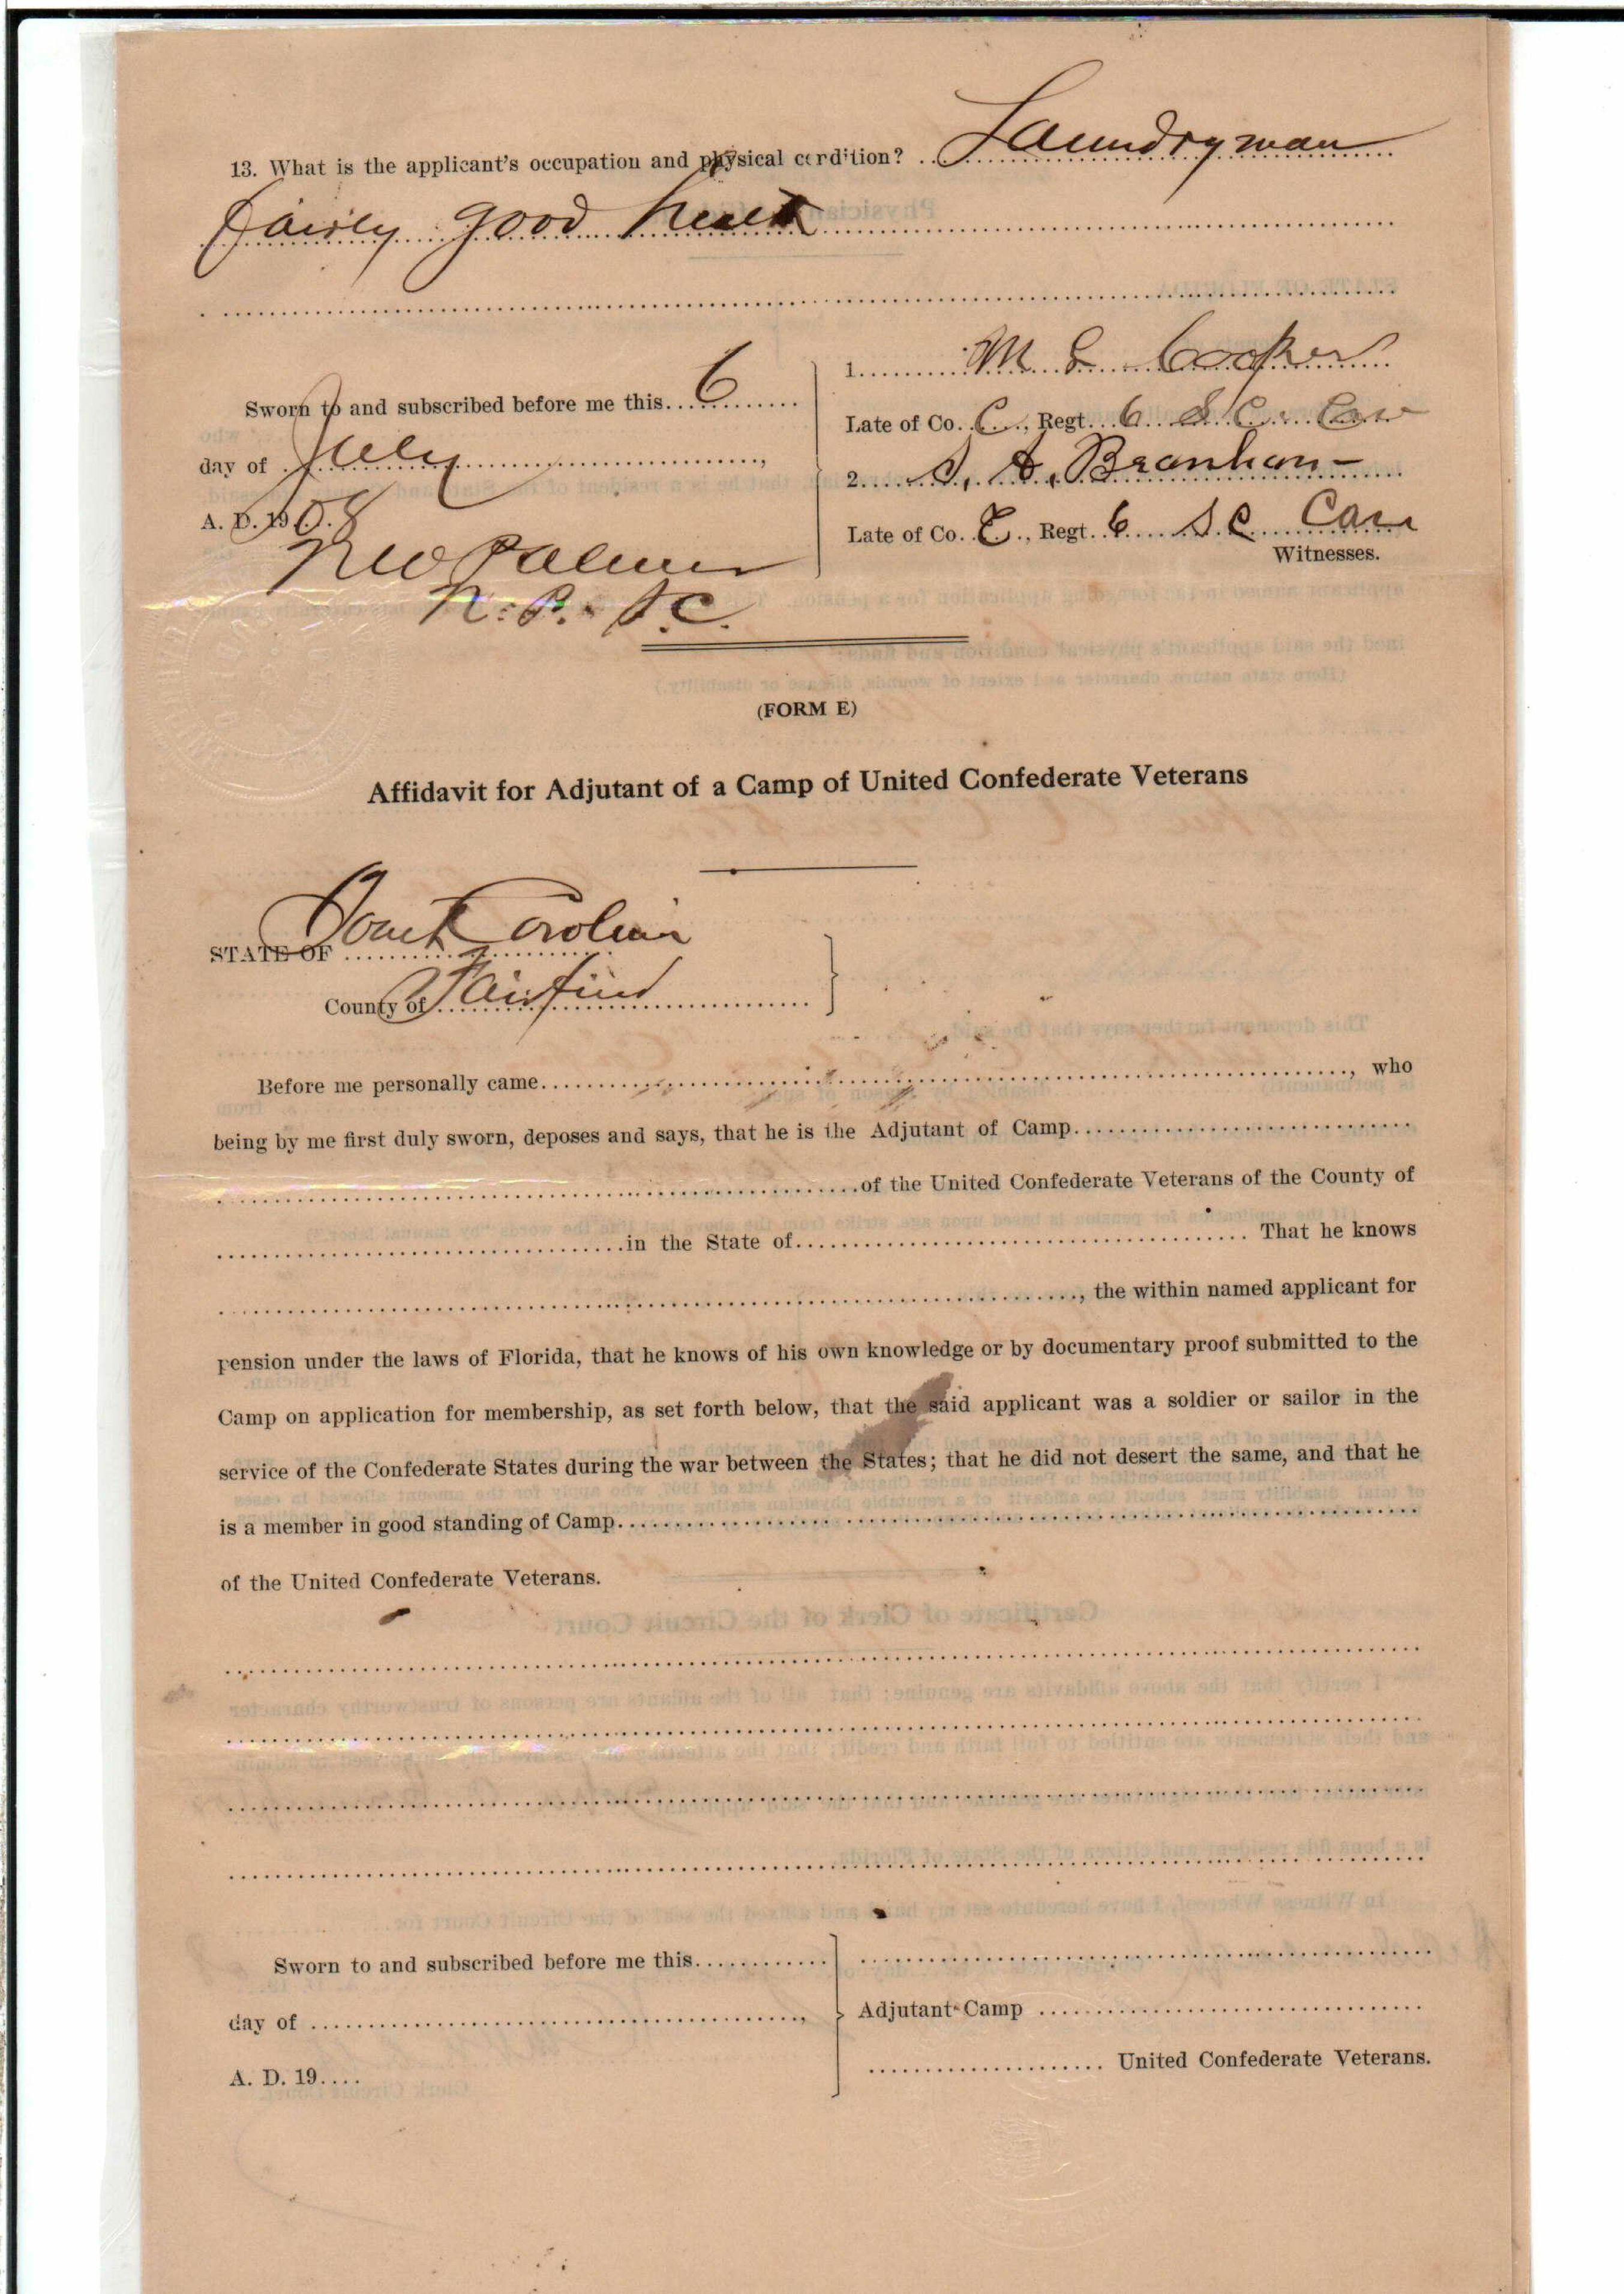 13. What is the applicant's occupation and physical condition? Laundryman
Fairly good healt
Sworn to and subscribed before me this 6
day of July,
A. D. 1908
N W Palmer
N. P. S. C.
1. M E Cooper
Late of Co. C., Regt. 6 S C Cav
2. S. A. Branham
Late of Co. E., Regt. 6 S C Cav
Witnesses.
(FORM E)
Affidavit for Adjutant of a Camp of United Confederate Veterans
STATE OF South Carolina
County of Fairfield
Before me personally came, who
being by me first duly sworn, deposes and says, that he is the Adjutant of Camp
of the United Confederate Veterans of the County of
in the State of. That he knows
, the within named applicant for
pension under the laws of Florida, that he knows of his own knowledge or by documentary proof submitted to the
Camp on application for membership, as set forth below, that the said applicant was a soldier or sailor in the
service of the Confederate States during the war between the States; that he did not desert the same, and that he
is a member in good standing of Camp
of the United Confederate Veterans.
Sworn to and subscribed before me this
day of,
A. D. 19
Adjutant Camp
United Confederate Veterans.